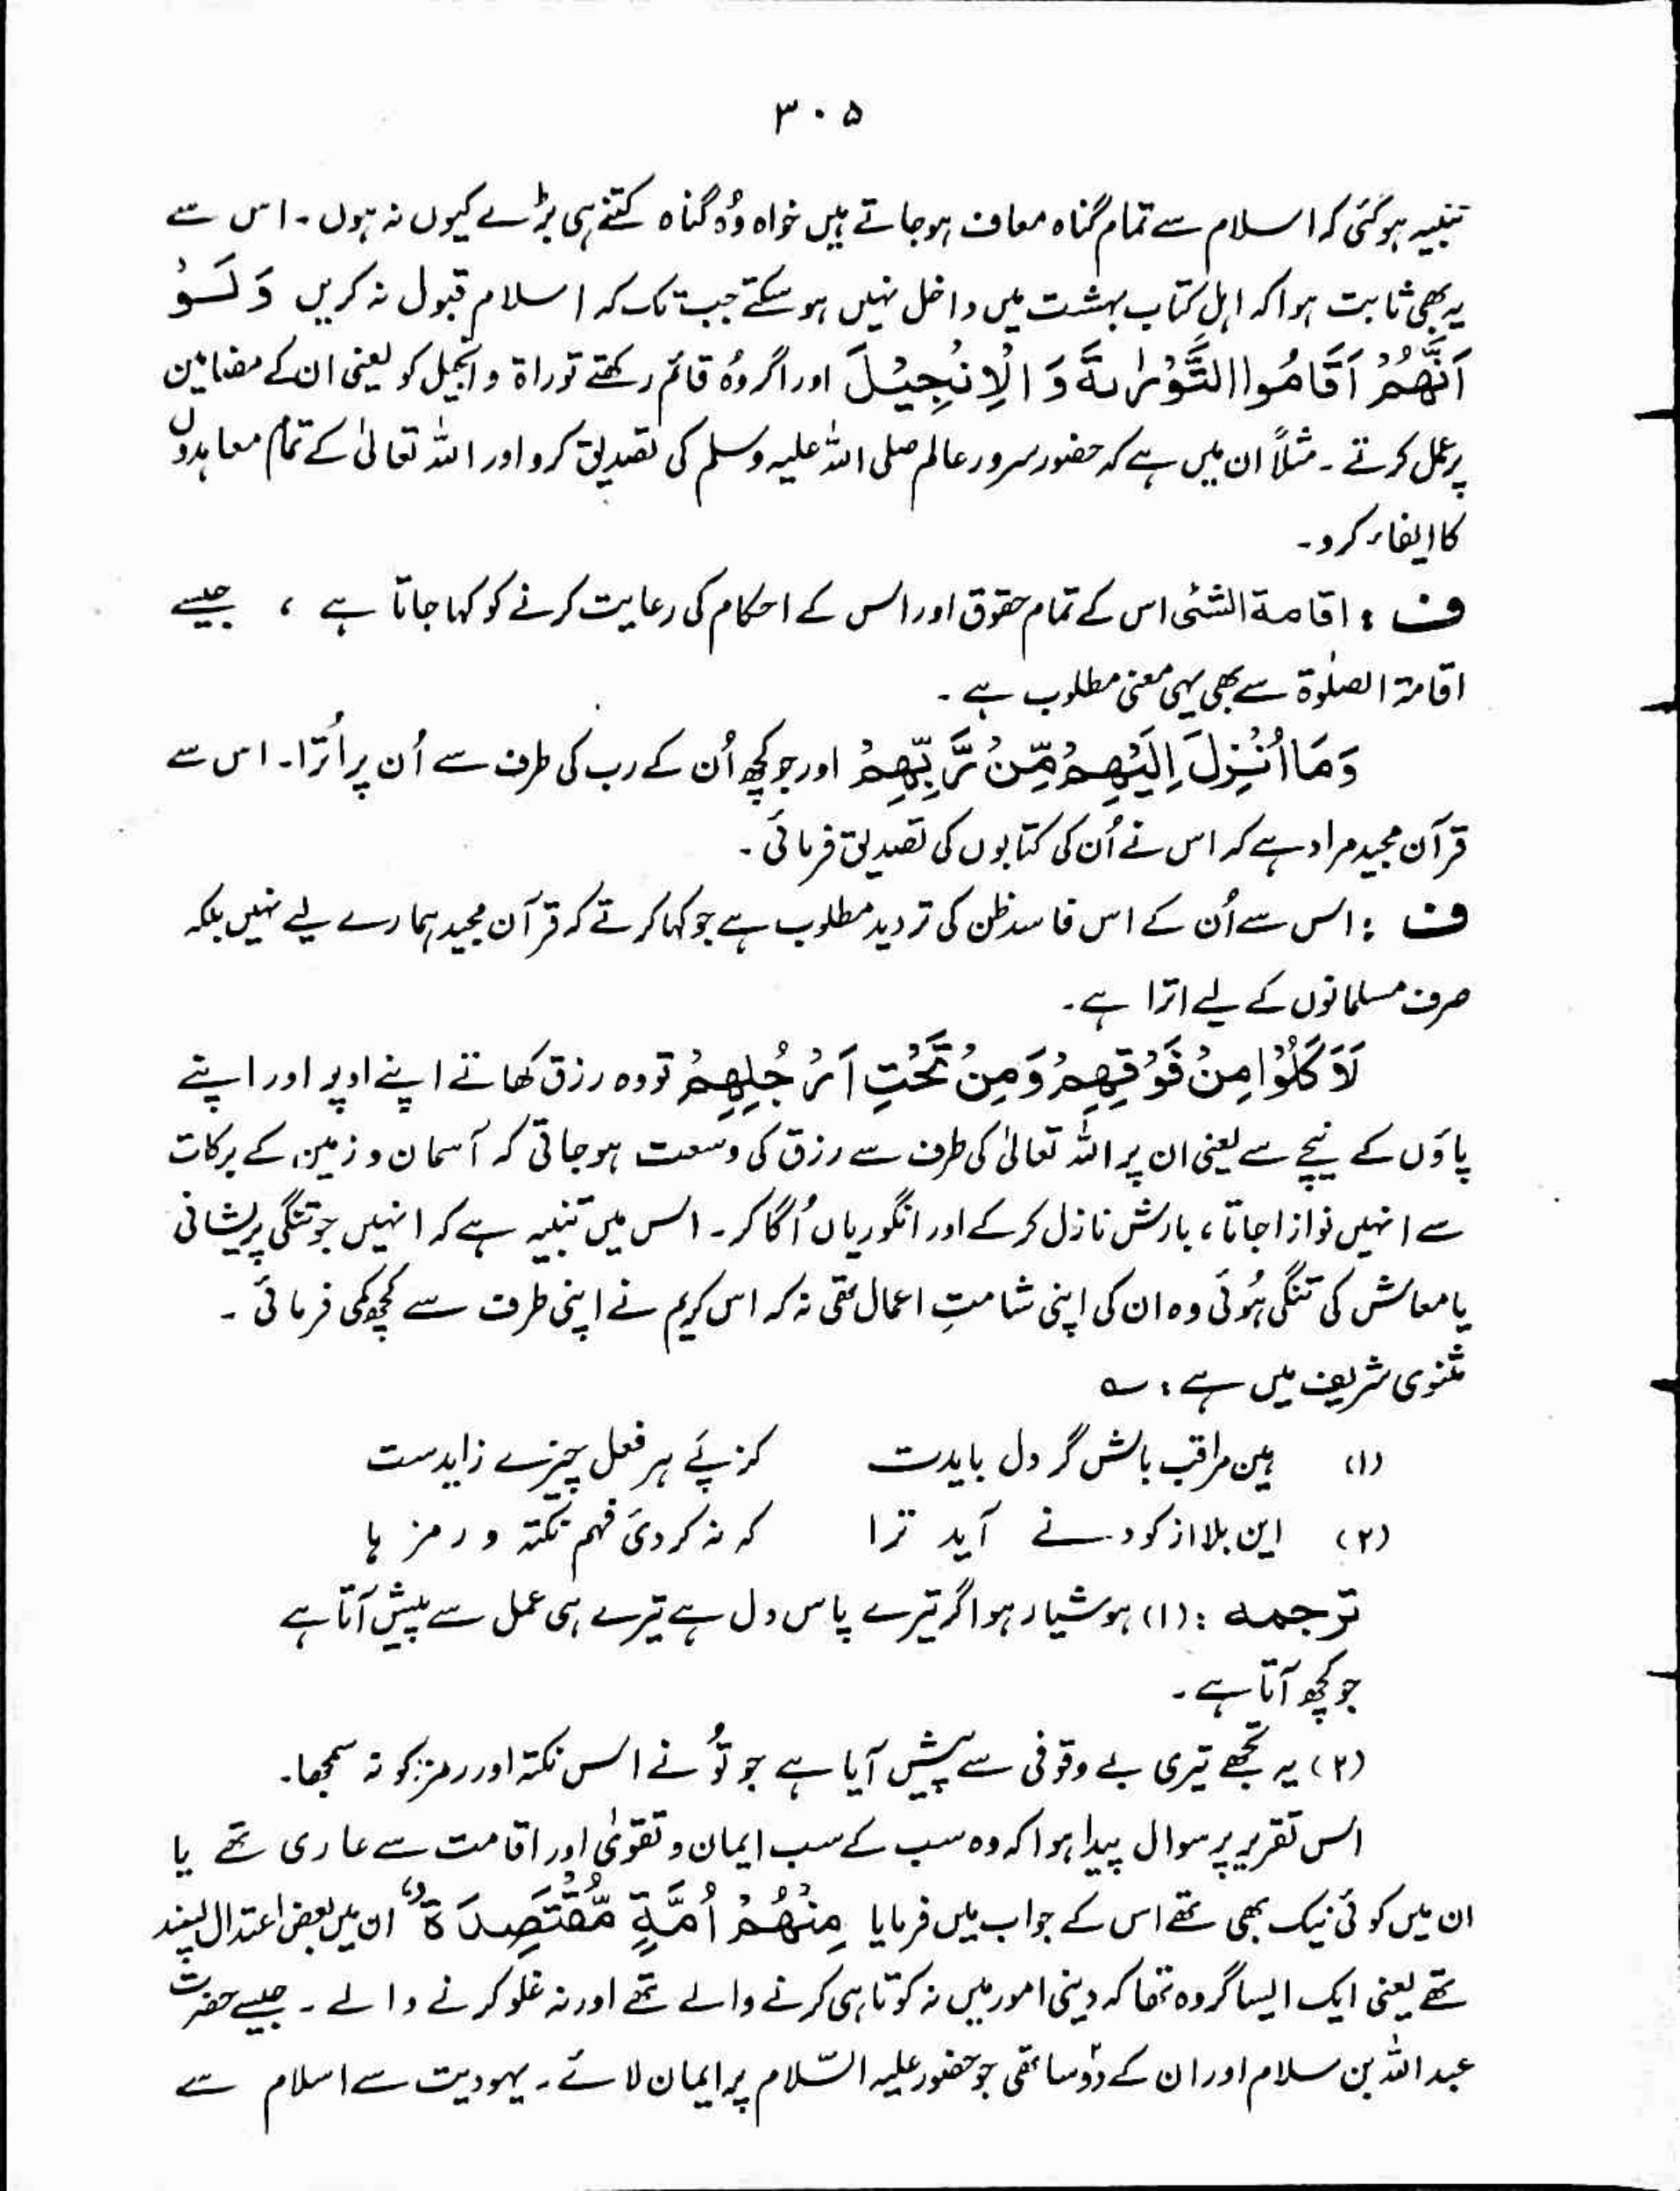 ۳۰۵
تنبیہ ہوگئی کہ اسلام سے تمام گناہ معاف ہوجاتے ہیں خواہ وُہ گناہ کتنے ہی بڑے کیوں نہ ہوں۔ اس سے
یہ بھی ثابت ہوا کہ اہلِ کتاب بہشت میں داخل نہیں ہوسکتے جب تک کہ اسلام قبول نہ کریں وَلَوْ
اَنَّھُمْ اَقَامُوا التَّوْرٰىةَ وَ الْاِنْجِيْلَ اور اگر وُہ قائم رکھتے توراۃ و انجیل کو یعنی ان کے مضامین
پر عمل کرتے۔ مثلاً ان میں ہے کہ حضور سرور عالم صلی اللہ علیہ وسلم کی تصدیق کرو اور اللہ تعالیٰ کے تمام معاہدوں
کا ایفاء کرو۔
ف : اقامۃ الشئی اس کے تمام حقوق اور اس کے احکام کی رعایت کرنے کو کہا جاتا ہے ، جیسے
اقامۃ الصلٰوۃ سے بھی یہی معنی مطلوب ہے۔
وَمَا اُنْزِلَ اِلَیْھِمْ مِّنْ رَّبِّھِمْ اور جو کچھ اُن کے رب کی طرف سے اُن پر اُترا۔ اس سے
قرآن مجید مراد ہے کہ اس نے اُن کی کتابوں کی تصدیق فرمائی۔
ف : اس سے اُن کے اس فاسد ظن کی تردید مطلوب ہے جو کہا کرتے کہ قرآن مجید ہمارے لیے نہیں بلکہ
صرف مسلمانوں کے لیے اترا ہے۔
لَاَکَلُوْا مِنْ فَوْقِھِمْ وَمِنْ تَحْتِ اَرْجُلِھِمْ تو وہ رزق کھاتے اپنے اوپر اور اپنے
پاؤں کے نیچے سے یعنی ان پر اللہ تعالیٰ کی طرف سے رزق کی وسعت ہوجاتی کہ آسمان و زمین کے برکات
سے انہیں نوازا جاتا، بارش نازل کرکے اور انگوریاں اُگا کر۔ اس میں تنبیہ ہے کہ انہیں جو تنگی پریشانی
یا معاش کی تنگی ہُوئی وہ ان کی اپنی شامتِ اعمال تھی نہ کہ اس کریم نے اپنی طرف سے کچھ کمی فرمائی۔
مثنوی شریف میں ہے : ؎
(۱) ہین مراقب باش گر دل بایدت کز پئے ہر فعل چیزے زایدست
(۲) این بلا از کودنے آید ترا کہ نہ کردی فہم نکتہ و رمز ہا
ترجمہ : (۱) ہوشیار ہو اگر تیرے پاس دل ہے تیرے ہی عمل سے پیش آتا ہے
جو کچھ آتا ہے۔
(۲) یہ تجھے تیری بے وقوفی سے پیش آیا ہے جو تُو نے اس نکتہ اور رمز کو نہ سمجھا۔
اس تقریر پر سوال پیدا ہوا کہ وہ سب کے سب ایمان و تقویٰ اور اقامت سے عاری تھے یا
ان میں کوئی نیک بھی تھے اس کے جواب میں فرمایا مِنْھُمْ اُمَّةٌ مُّقْتَصِدَةٌ ان میں بعض اعتدال پسند
تھے یعنی ایک ایسا گروہ تھا کہ دینی امور میں نہ کوتاہی کرنے والے تھے اور نہ غلو کرنے والے۔ جیسے حضرت
عبداللہ بن سلام اور ان کے دوسا تھی جو حضور علیہ السّلام پر ایمان لائے۔ یہودیت سے اسلام سے